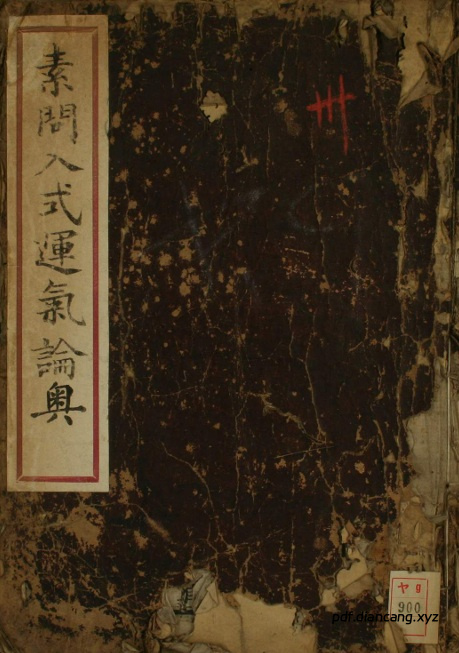 素問入式運氣論奥
卅
ヤ9
900
pdf.diancang.xyz